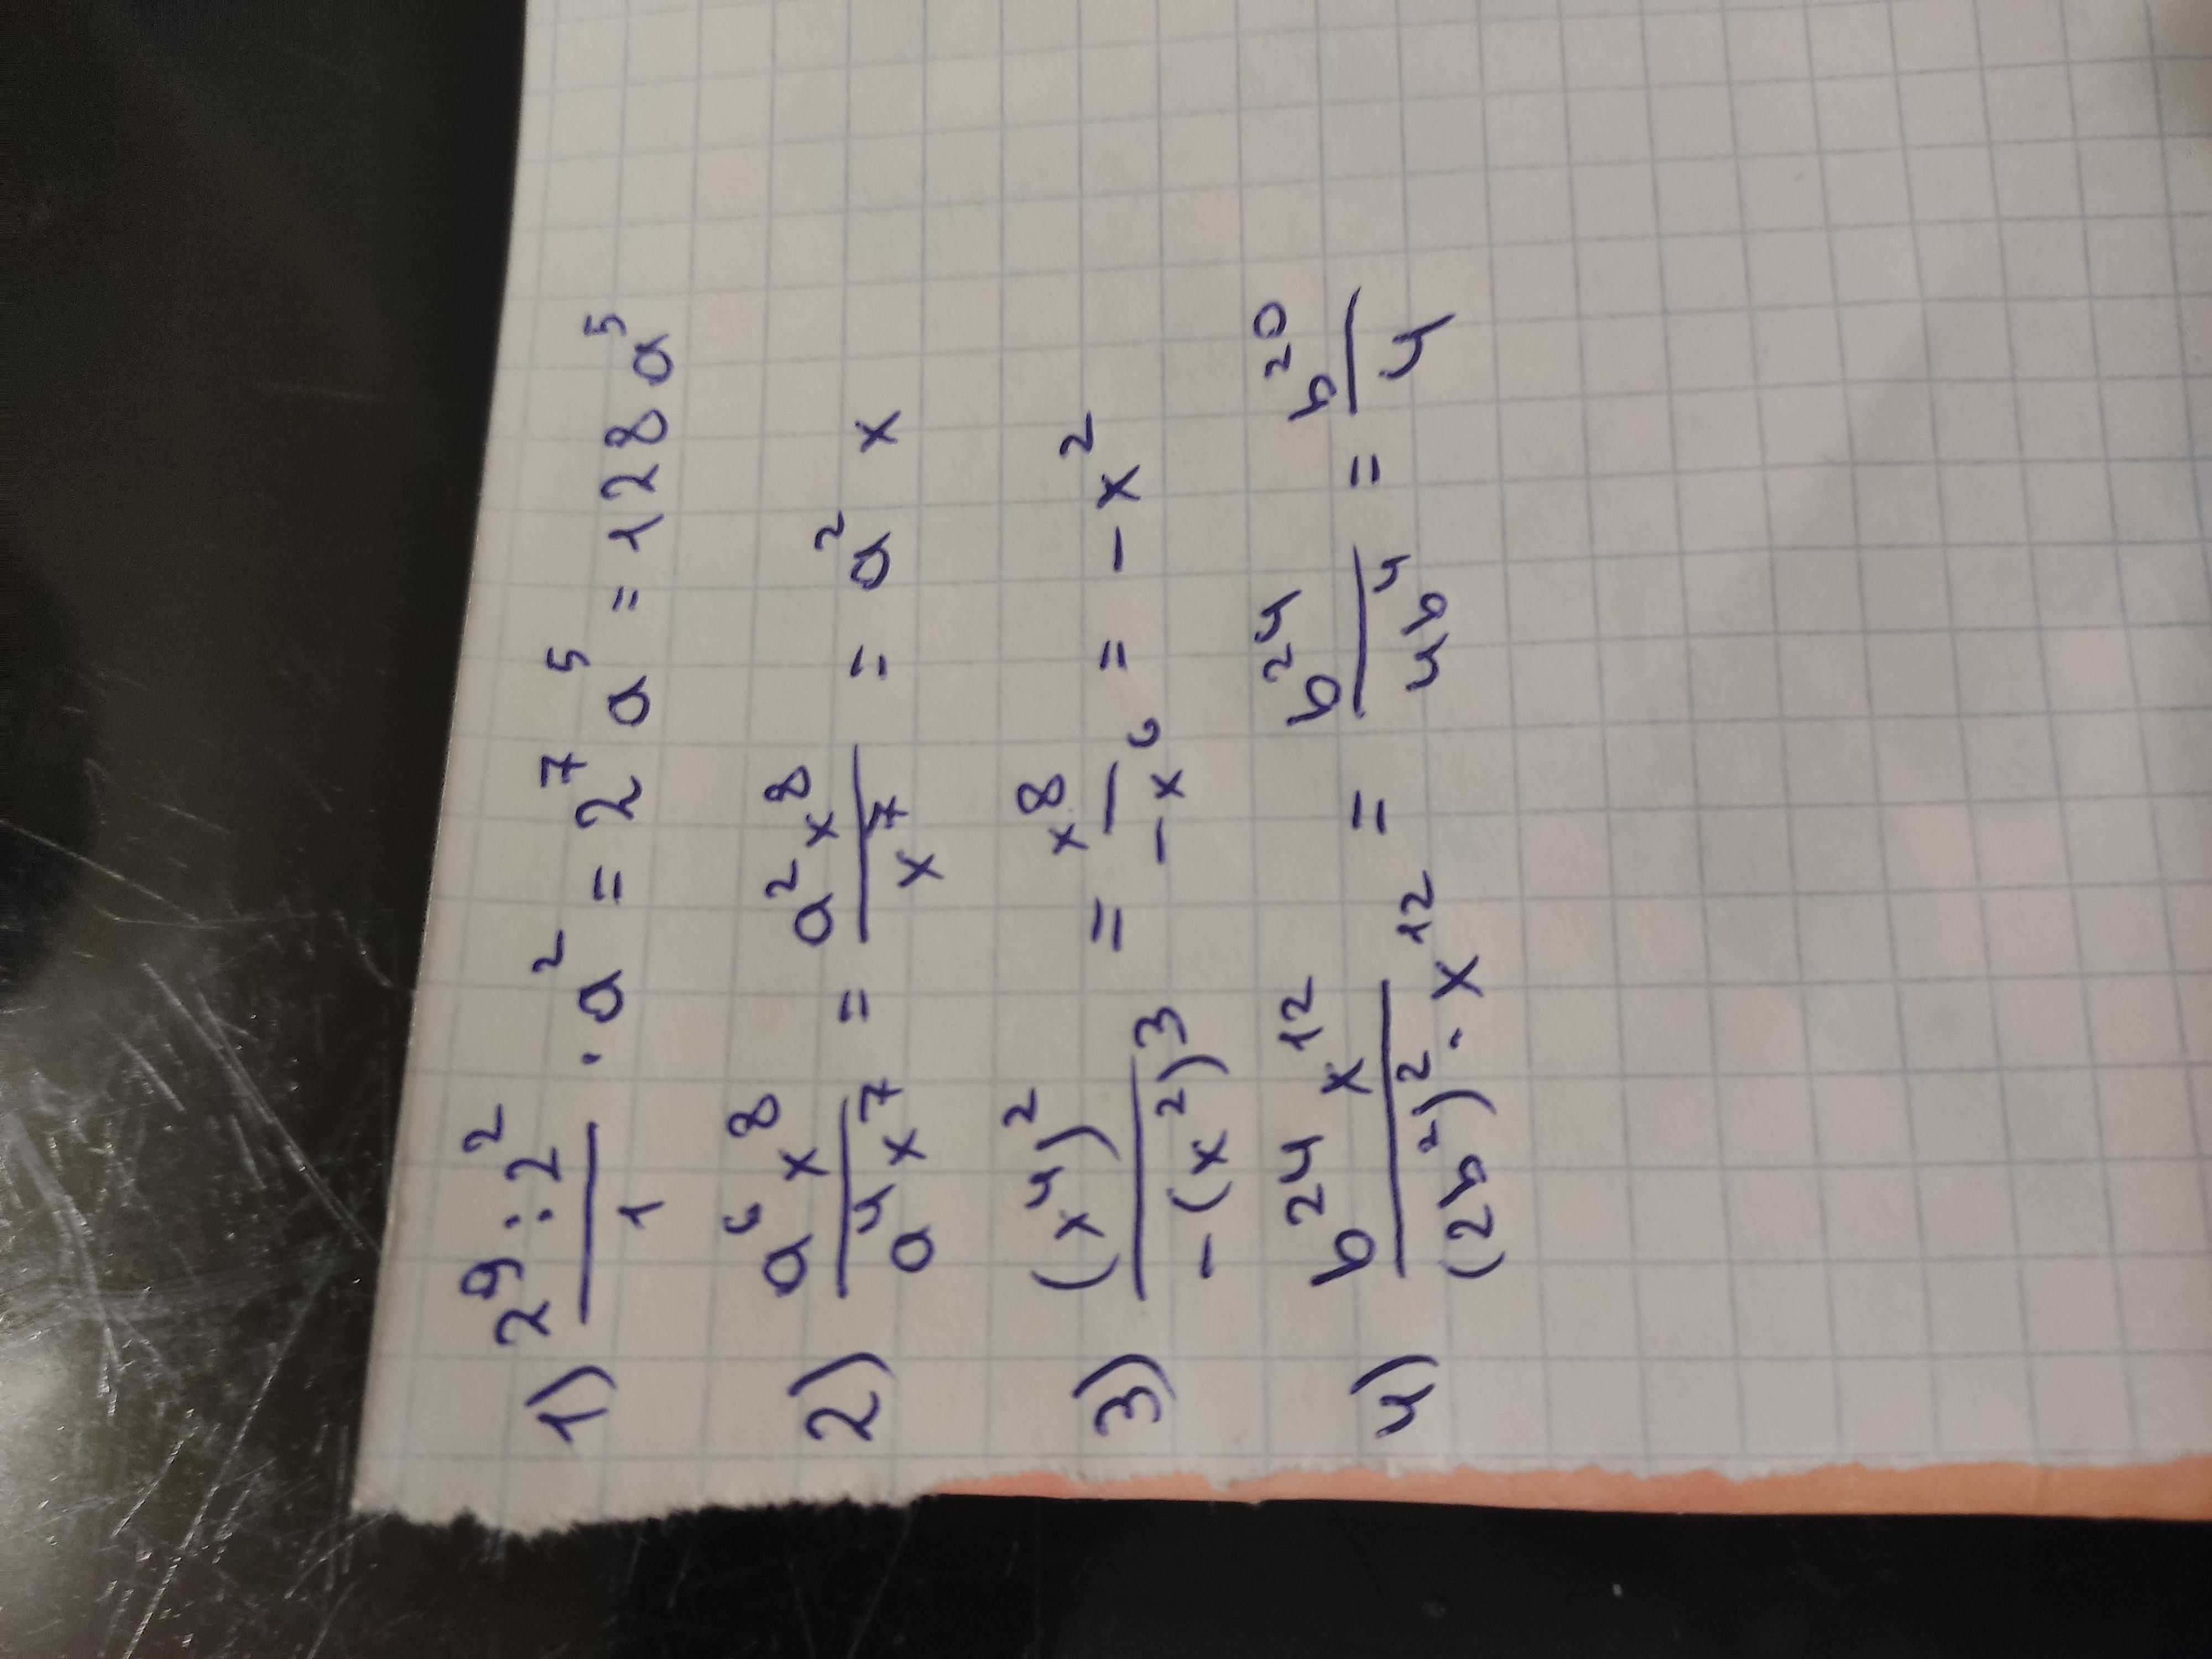 1) \frac{2^9 : 2^2}{1} \cdot a^2 = 2^7 a^5 = 128 a^5
2) \frac{a^6 x^8}{a^4 x^7} = \frac{a^2 x^8}{x^7} = a^2 x
3) \frac{(x^4)^2}{-(x^2)^3} = \frac{x^8}{-x^6} = -x^2
4) \frac{b^{24} x^{12}}{(2b^2)^2 \cdot x^{12}} = \frac{b^{24}}{4b^4} = \frac{b^{20}}{4}